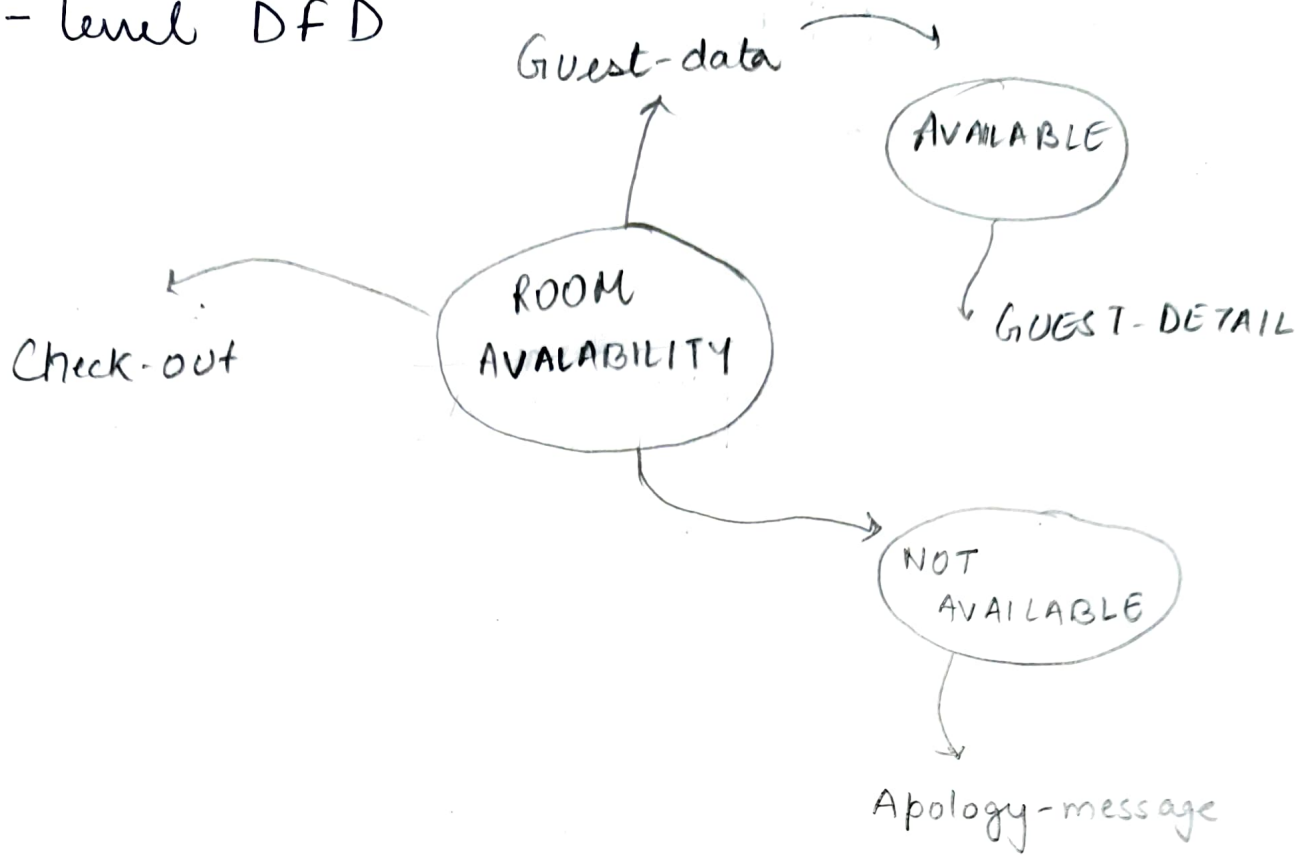 - level DFD
Guest-data
AVAILABLE
ROOM
AVALABILITY
GUEST-DETAIL
Check-out
NOT
AVAILABLE
Apology-message